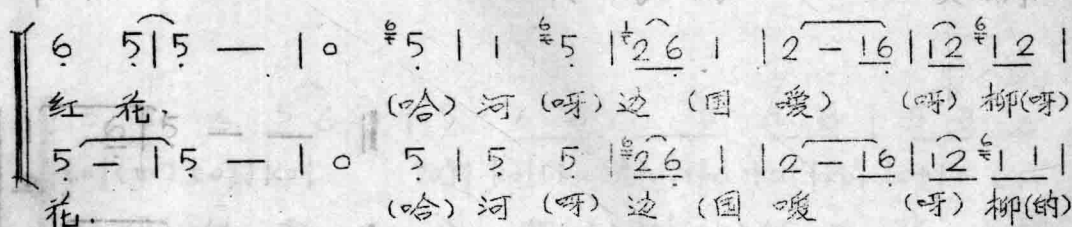 6 5 | 5 — | 0 5 | 1 5 | 2 6 1 | 2 — 1 6 | 1 2 1 2 |
红 花. (哈) 河 (呀) 边 (国 嗳) (呀) 柳(呀)
5 — | 5 — | 0 5 | 5 5 | 2 6 1 | 2 — 1 6 | 1 2 1 1 |
花. (哈) 河 (呀) 边 (国 嗳 (呀) 柳(的)